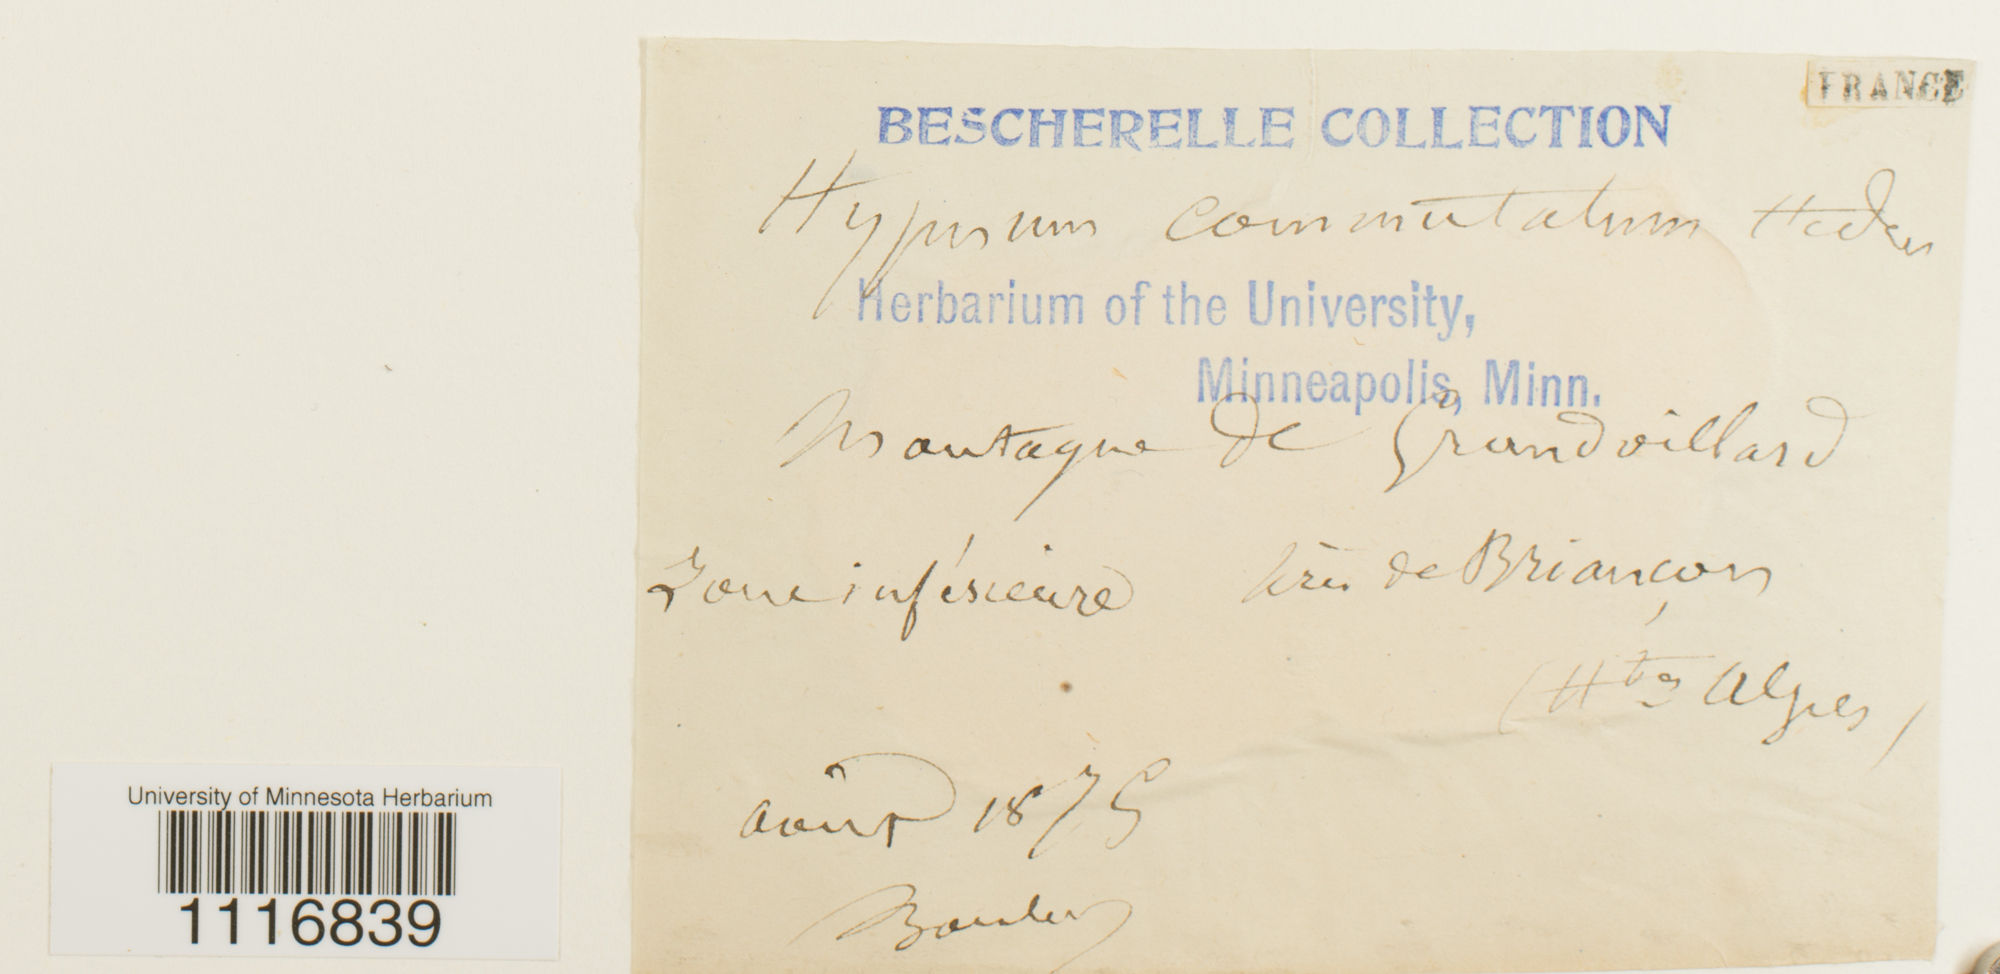 FRANCE
BESCHERELLE COLLECTION
Hypnum commutatum Hedw
Herbarium of the University,
Minneapolis, Minn.
Montagne de Grandvillard
Zone inférieure près de Briançon
(Htes Alpes)
août 1875
University of Minnesota Herbarium
1116839